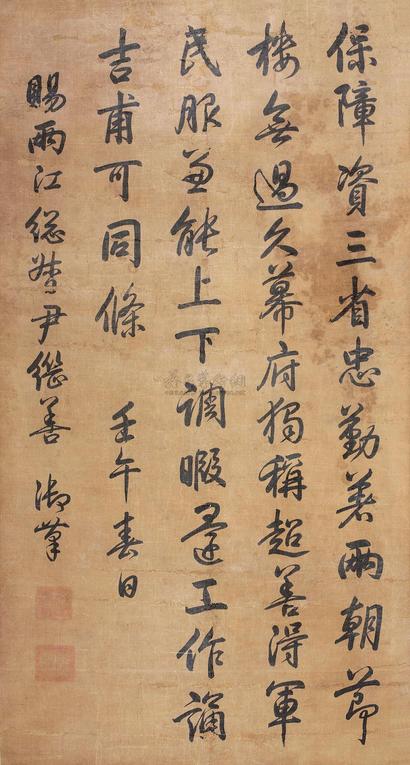 保障資三省忠勤著兩朝節
樓無過久幕府獨稱超善得軍
民服並能上下調暇還工作誦
吉甫可同條 壬午春日
賜兩江總督尹繼善 御筆